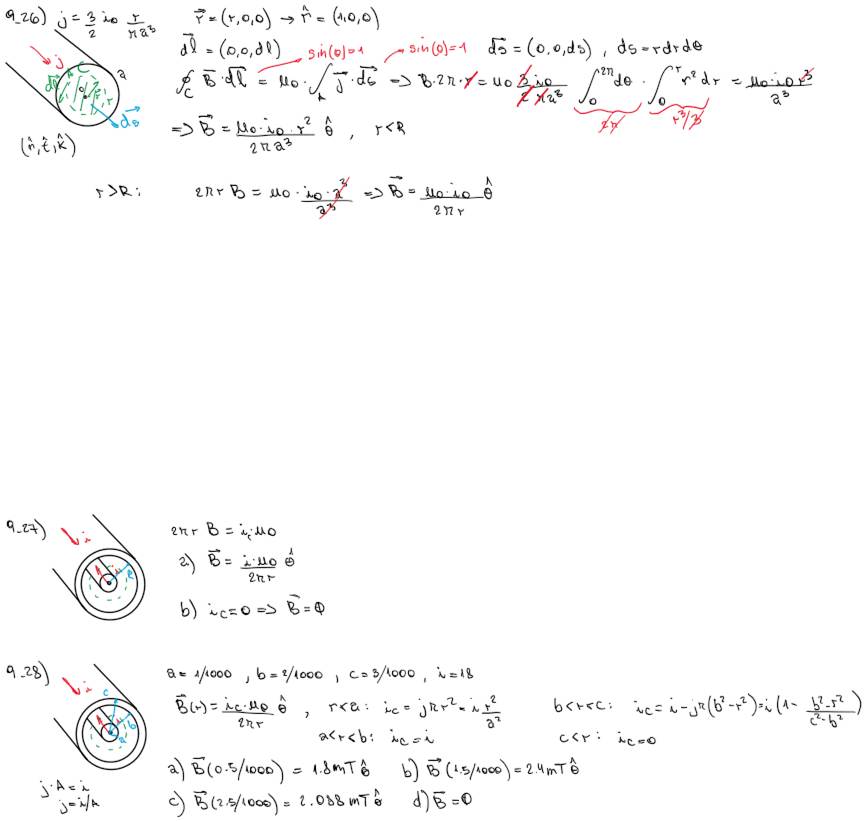 9_26) j = 3/2 i₀ r/πa³
r⃗ = (r,0,0) → r̂ = (1,0,0)
dl⃗ = (0,0,dl) sin(θ)=1 sin(θ)=1 ds⃗ = (0,0,ds) , ds = rdrdθ
∮_C B⃗·dl⃗ = μ₀ · ∫_A j⃗·ds⃗ => B·2π·r = μ₀ 3/2 i₀/πa³ ∫₀^2π dθ · ∫₀^r r²dr = μ₀·i₀·r³/a³
2π r³/3
j C a dl⃗ r ds⃗
(n̂,t̂,k̂)
=> B⃗ = μ₀·i₀·r²/2πa³ θ̂ , r<R
r>R: 2πr B = μ₀·i₀·a³/a³ => B⃗ = μ₀·i₀/2πr θ̂
9_27) i 2πr B = i_c μ₀
a) B⃗ = i·μ₀/2πr θ̂
b) i_c = 0 => B⃗ = 0
9_28) i c b a a = 1/1000 , b = 2/1000 , c = 3/1000 , i = 18
B⃗(r) = i_c·μ₀/2πr θ̂ , r<a: i_c = jπr² = i r²/a² b<r<c: i_c = i-jπ(b²-r²) = i(1- b²-r²/c²-b²)
a<r<b: i_c = i c<r: i_c = 0
a) B⃗(0.5/1000) = 1.8mT θ̂ b) B⃗(1.5/1000) = 2.4mT θ̂
j·A = i
j = i/A
c) B⃗(2.5/1000) = 2.088mT θ̂ d) B⃗ = 0